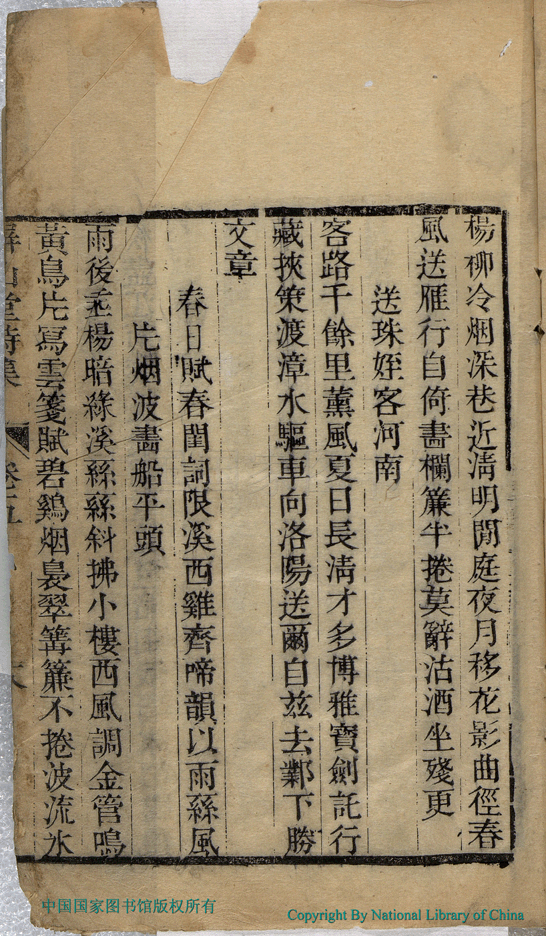 楊柳冷烟深巷近淸明閒庭夜月移花影曲徑春
風送雁行自倚畵欄簾半捲莫辭沽酒坐殘更
送珠姪客河南
客路千餘里薰風夏日長淸才多博雅寶劍託行
藏挾策渡漳水驅車向洛陽送爾自玆去鄴下勝
文章
春日賦春閨詞限溪西雞齊啼韻以雨絲風
片烟波畵船平頭
雨後垂楊暗綠溪絲絲斜拂小樓西風調金管鳴
黃鳥片寫雲箋賦碧鷄烟裊翠篝簾不捲波流氷
山堂詩集
卷五
中国国家图书馆版权所有
Copyright By National Library of China